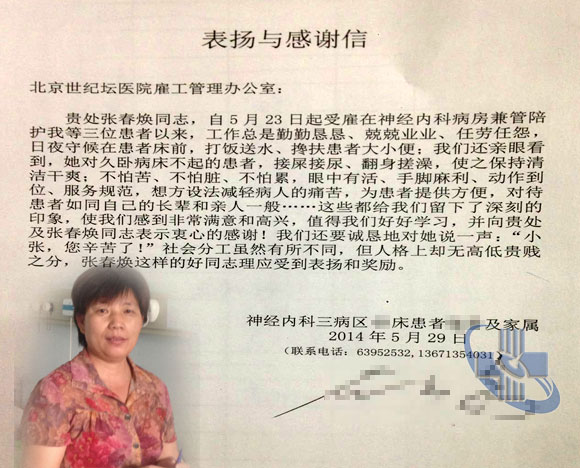 表扬与感谢信
北京世纪坛医院雇工管理办公室：
贵处张春焕同志，自5月23日起受雇在神经内科病房兼管陪
护我等三位患者以来，工作总是勤勤恳恳、兢兢业业、任劳任怨，
日夜守候在患者床前，打饭送水、搀扶患者大小便；我们还亲眼看
到，她对久卧病床不起的患者，接屎接尿、翻身搓澡，使之保持清
洁干爽；不怕苦、不怕脏、不怕累，眼中有活、手脚麻利、动作到
位、服务规范，想方设法减轻病人的痛苦，为患者提供方便，对待
患者如同自己的长辈和亲人一般……这些都给我们留下了深刻的
印象，使我们感到非常满意和高兴，值得我们好好学习，并向贵处
及张春焕同志表示衷心的感谢！我们还要诚恳地对她说一声：“小
张，您辛苦了！”社会分工虽然有所不同，但人格上却无高低贵贱
之分，张春焕这样的好同志理应受到表扬和奖励。
神经内科三病区 床患者 及家属
2014年5月29日
（联系电话：63952532,13671354031）